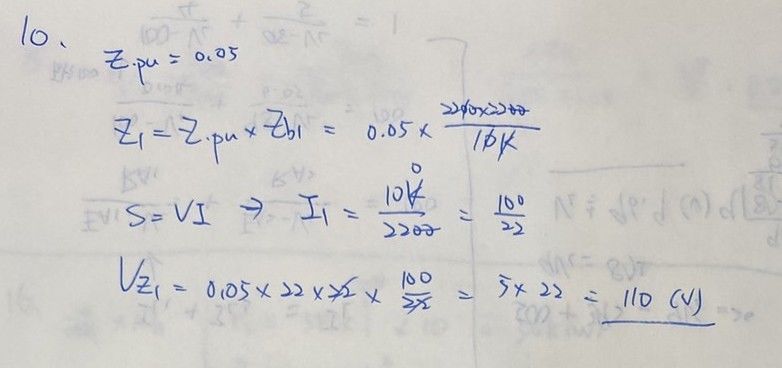 10.
Z.pu = 0.05
Z1 = Z.pu × Zb1 = 0.05 × 2200×2200 / 10K
S = VI → I1 = 10K 0 / 2200 = 100 / 22
VZ1 = 0.05 × 22 × 22 × 100 / 22 = 5 × 22 = 110 (V)